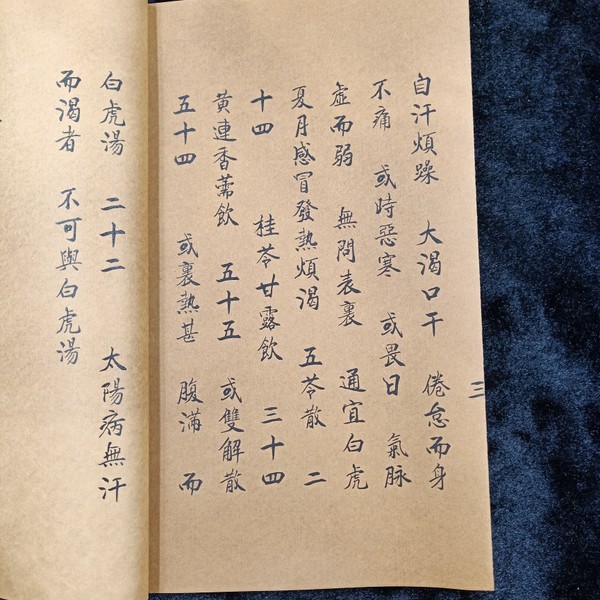 三
自汗煩躁 大渴口干 倦怠而身
不痛 或時惡寒 或畏日 氣脉
虛而弱 無問表裏 通宜白虎
夏月感冒發熱煩渴 五苓散 二
十四 桂苓甘露飲 三十四
黃連香薷飲 五十五 或雙解散
五十四 或裏熱甚 腹滿 而
白虎湯 二十二 太陽病無汗
而渴者 不可與白虎湯